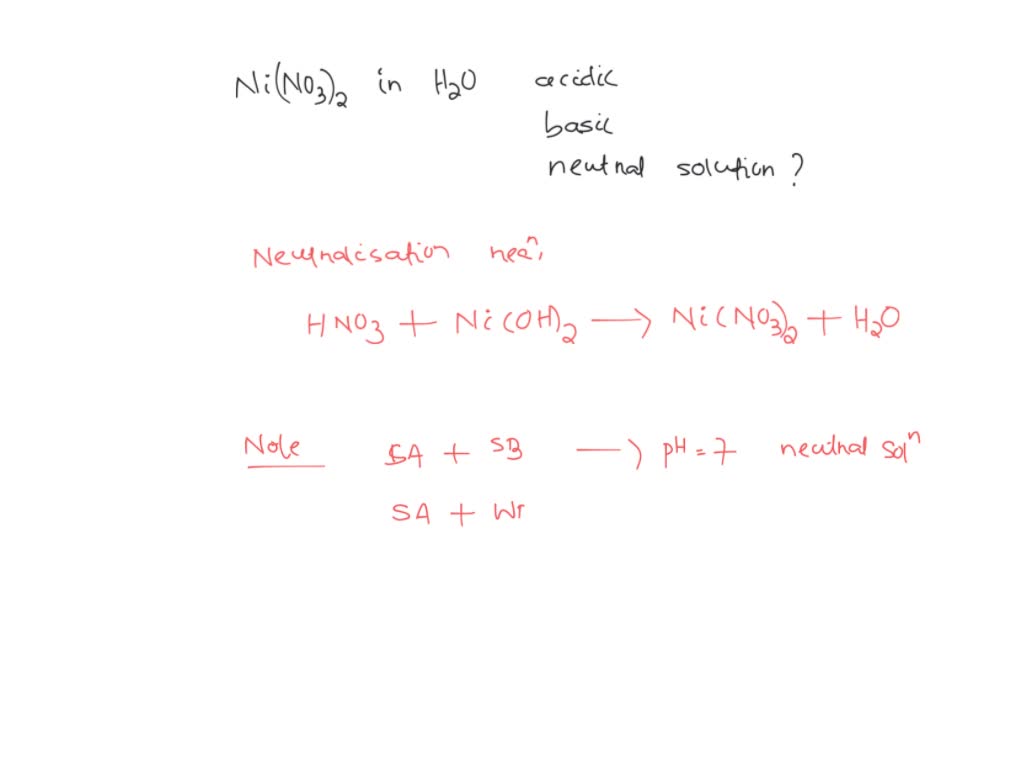 Ni(NO3)2 in H2O acidic
basic
neutral solution?
Neutralisation reaⁿ,
HNO3 + Ni(OH)2 → Ni(NO3)2 + H2O
Note SA + SB → pH = 7 neutral solⁿ
SA + Wr